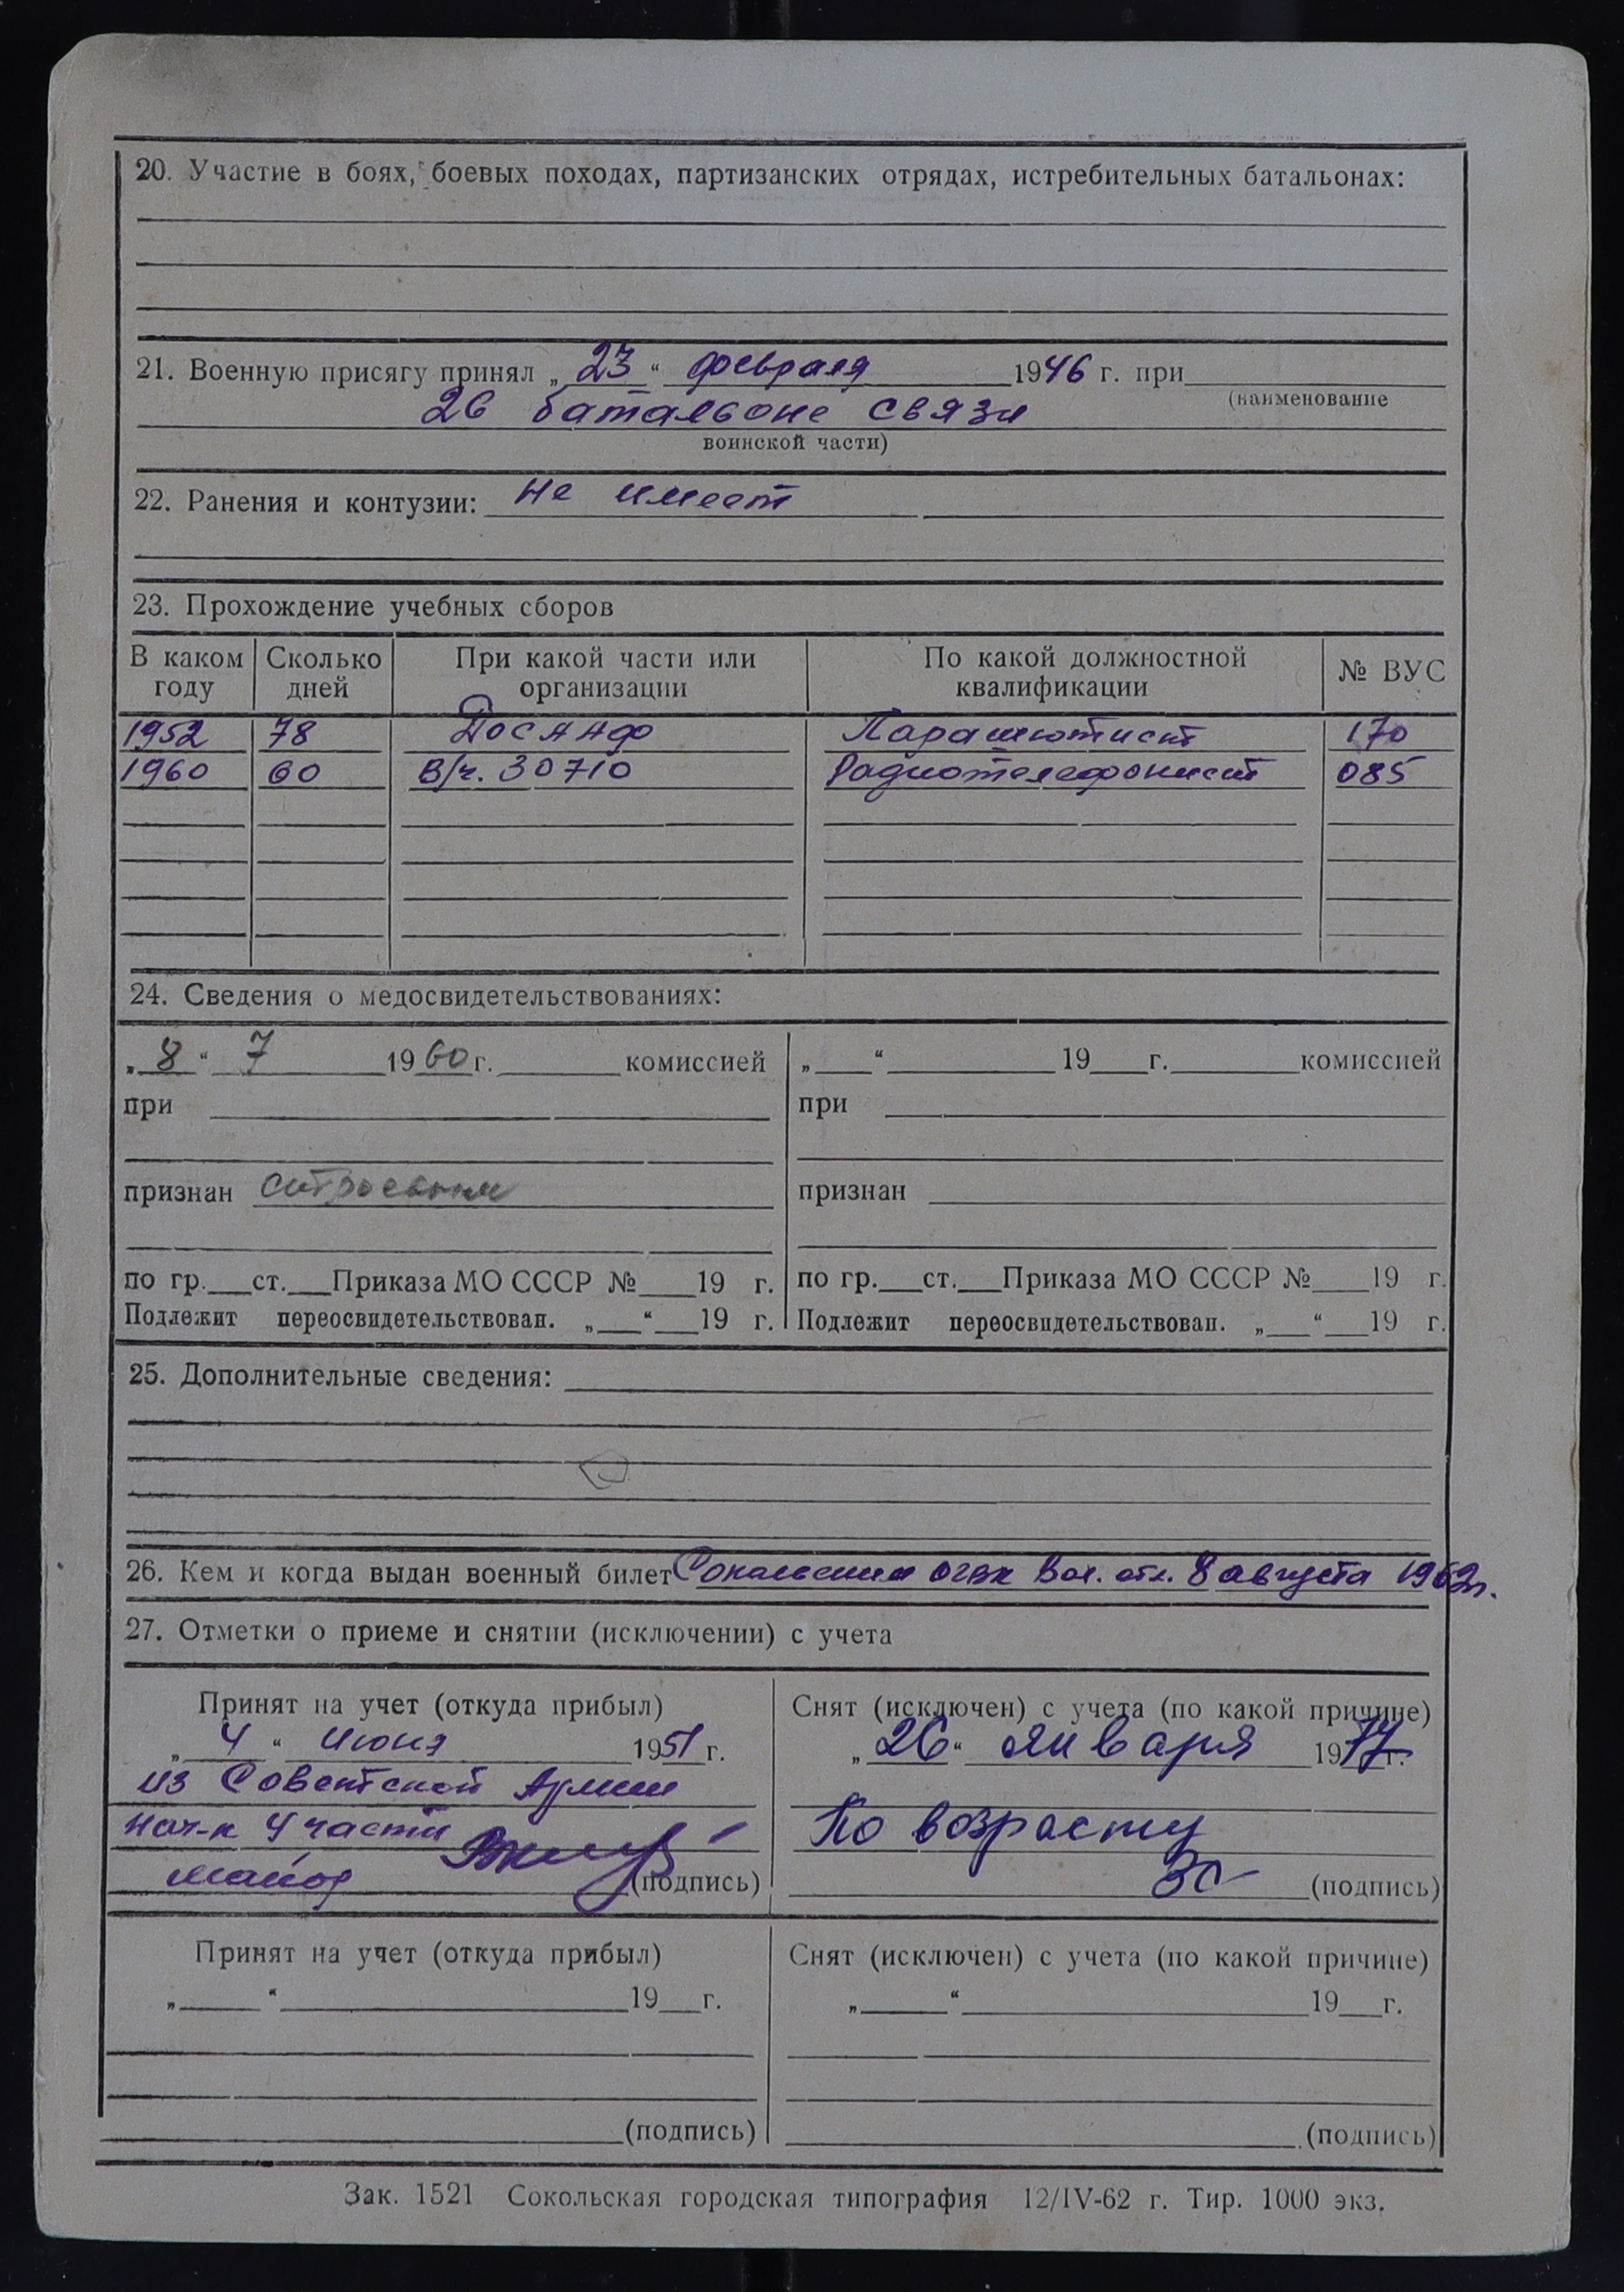 20. Участие в боях, боевых походах, партизанских отрядах, истребительных батальонах:
21. Военную присягу принял „23“ февраля 1946 г. при
(наименование
26 батальоне связи
воинской части)
22. Ранения и контузии: не имеет
23. Прохождение учебных сборов
В каком году Сколько дней При какой части или организации По какой должностной квалификации № ВУС
1952 78 ДОСААФ Парашютист 170
1960 60 В/ч. 30710 Радиотелефонист 085
24. Сведения о медосвидетельствованиях:
„8“ 7 1960 г. комиссией
при
признан строевым
по гр.___ст.___Приказа МО СССР №___19 г.
Подлежит переосвидетельствован. „___“___19 г.
„___“___19___г.___комиссией
при
признан
по гр.___ст.___Приказа МО СССР №___19 г.
Подлежит переосвидетельствован. „___“___19 г.
25. Дополнительные сведения:
26. Кем и когда выдан военный билет Сокольским Вол. 8 августа 1962г.
27. Отметки о приеме и снятии (исключении) с учета
Принят на учет (откуда прибыл)
„4“ июня 1951 г.
из Советской Армии
Нач-к 4 части
майор (подпись)
Снят (исключен) с учета (по какой причине)
„26“ января 1977 г.
По возрасту
(подпись)
Принят на учет (откуда прибыл)
„___“___19___г.
(подпись)
Снят (исключен) с учета (по какой причине)
„___“___19___г.
(подпись)
Зак. 1521 Сокольская городская типография 12/IV-62 г. Тир. 1000 экз.